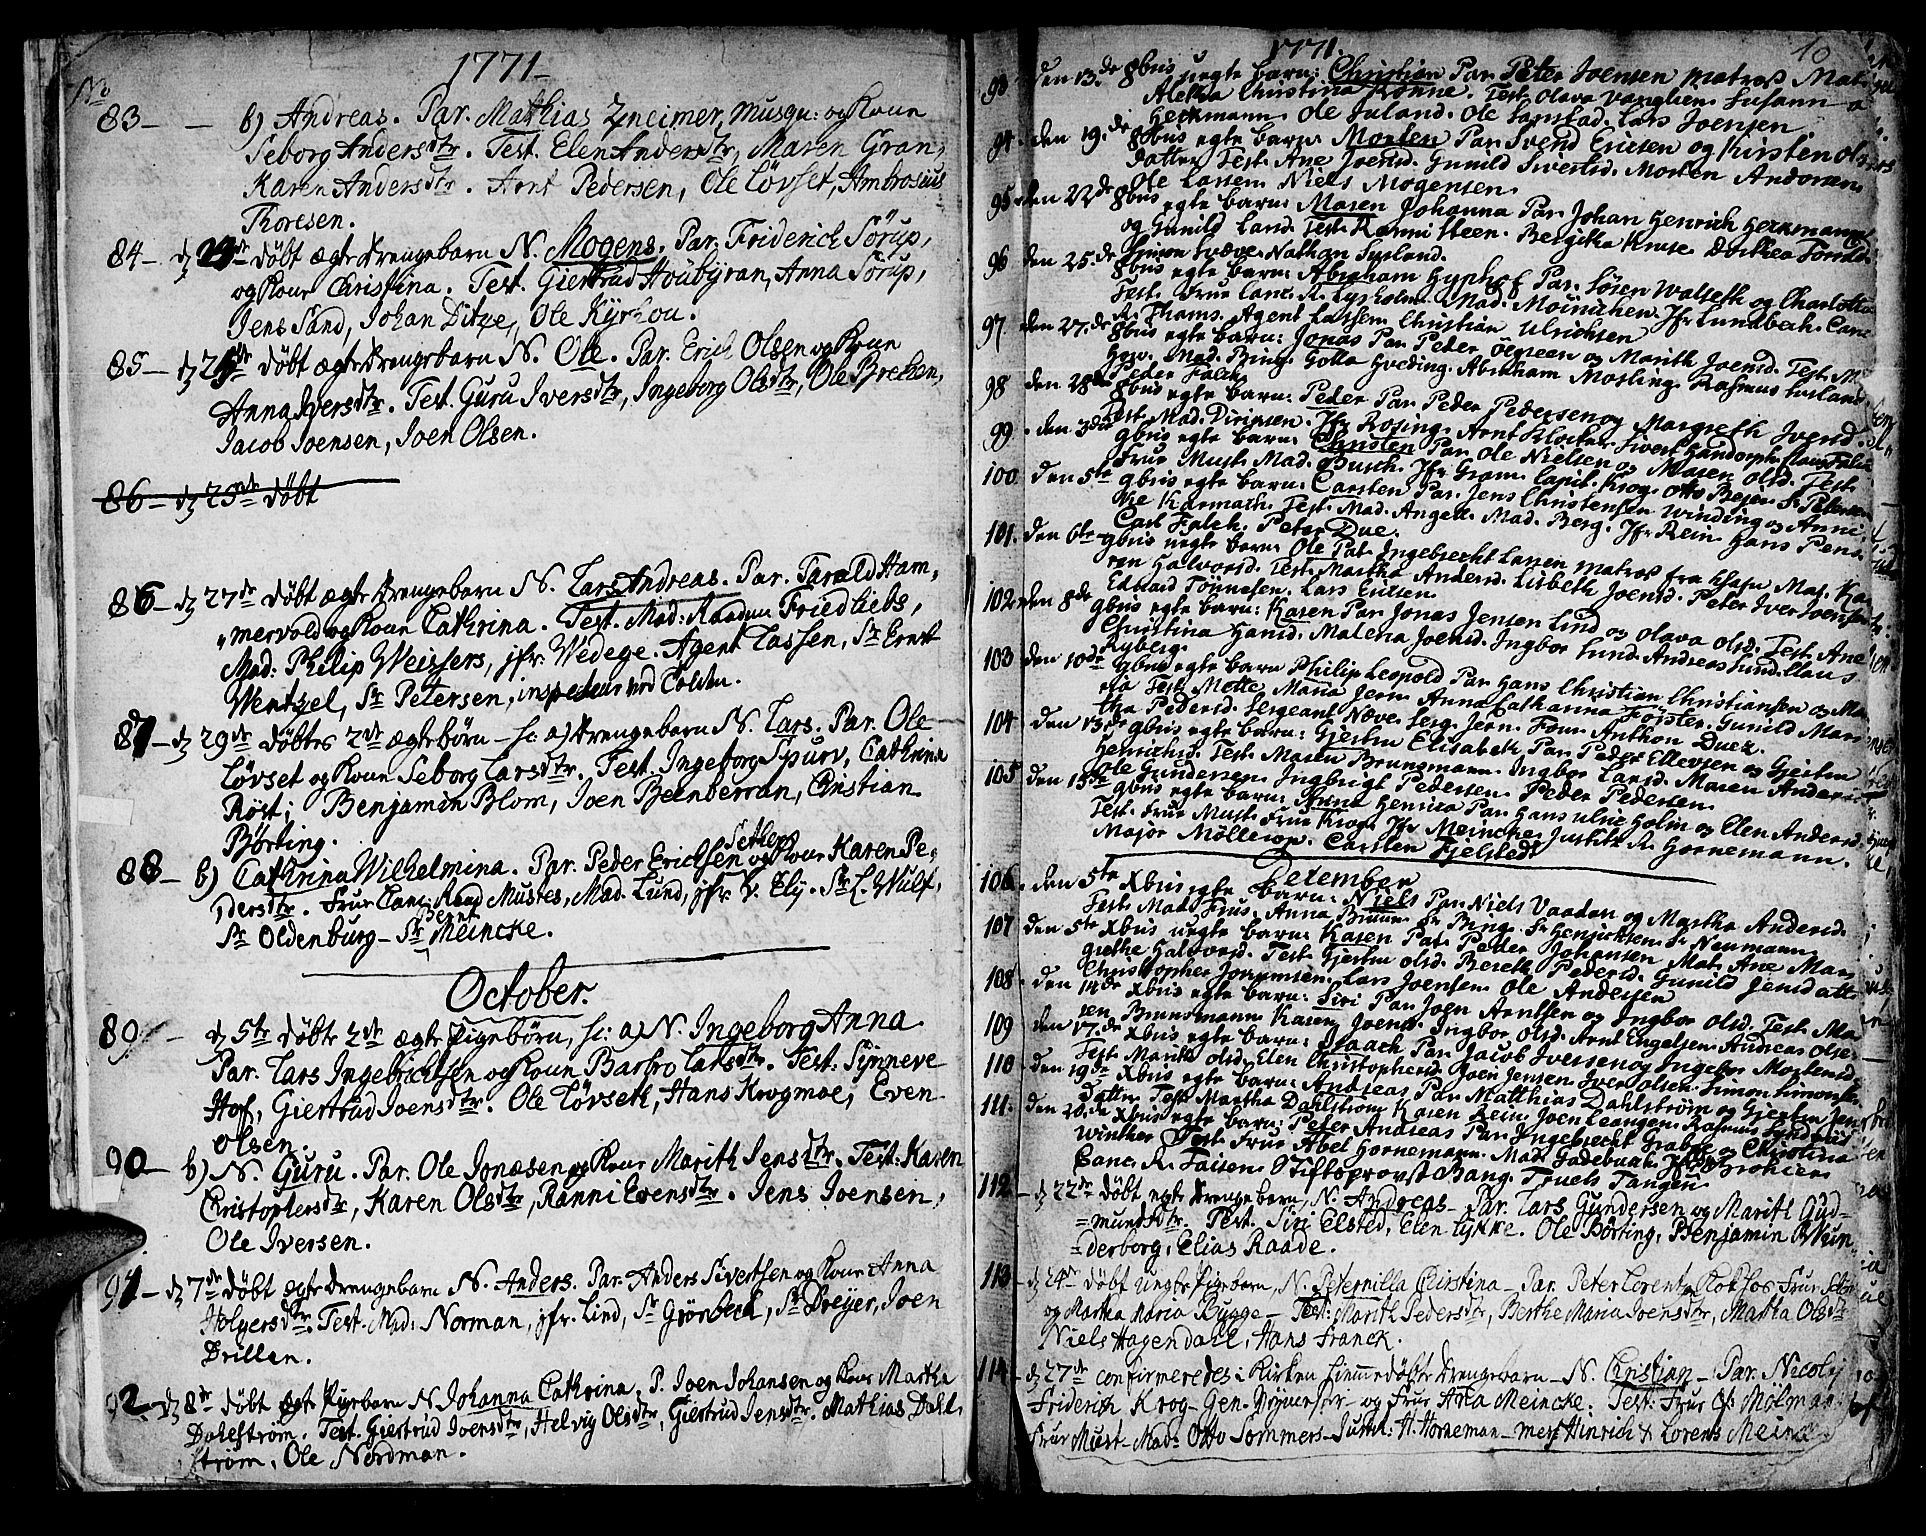 1771
No
83 – – b) Andreas. Par. Mathias Zneimer, Musqu: og Kone
Seborg Andersdtr. Test. Elen Andersdtr, Maren Gran,
Karen Andersdtr. Arnt Pedersen, Ole Lövset, Ambrosius
Thoresen.
84 – d döbt ægte drengebarn N. Mogens. Par. Friderich Sörup,
og Kone Christina. Test. Giertrud Houbyran, Anna Sörup,
Jens Sand, Johan Ditze, Ole Kyrhou.
85 – d döbt ægte drengebarn N. Ole. Par. Erich Olsen og Kone
Anna Iversdtr. Test. Guru Iversdtr, Ingeborg Olsdtr, Ole Brecken,
Jacob Joensen, Joen Olsen.
86 – d 25de döbt
86 – d 27de döbt ægte drengebarn N. Lars Andreas. Par. Tarald Ham,
mervold og Kone Cathrina. Test. Mad: Raadm Friedliebs,
Mad: Philip Weissers, jfr. Wedege. Agent Lassen, Sr Ernst
Wentzel, Sr Petersen, inspecteur ved Tolden.
87 – d 29de döbtes 2de ægte börn – sc: a) drengebarn N. Lars. Par. Ole
Lövset og Kone Seborg Larsdtr. Test. Ingeborg Spurv, Cathrina
Röst; Benjamin Blom, Joen Beenberran, Cristian
Börting.
Setler
88 – b) Cathrina Wilhelmina. Par. Peder Erichsen og Kone Karen Pe,
dersdtr. Frue Canc: Raad Mustes, Mad. Lund, jfr. V. Ely. Sr L. Wulf,
Sr Oldenburg – Sr Bernt Meincke.
October.
89 – d 5te döbt 2de ægte Pigebörn, sc: a) N. Ingeborg Anna
Par. Lars Ingebrichtsen og Kone Barbro Larsdtr. Test: Synneve
Hof, Giertrud Joensdtr. Ole Lövseth, Hans Krogmoe, Even
Olsen.
90 – b) N. Guru. Par. Ole Jonæsen og Kone Marith Jensdtr. Test: Karen
Christophersdtr, Karen Olsdtr, Ranni Evensdtr. Jens Joensen,
Ole Iversen.
91 – d 7de döbt ægte drengebarn N. Anders. Par. Anders Sivertsen og Kone Anna
Holgersdtr. Test. Mad: Norman, jfr. Lind, Sr Grönbech, Sr Breyer, Joen
Drillen.
92 – d 8de döbt ægte Pigebarn N. Johanna Cathrina. P. Joen Johansen og Kone Martha
Dahlström. Test. Giertrud Iversdtr, Helvig Olsdtr, Giertrud Jensdtr. Mathias Dahl,
ström, Ole Nordman.
1771. 10
93 den 13de 8bris uegte barn: Christian Par. Peter Joensen Matros Mat:
Aletha Christina Rönne. Test. Olava Vanglien. Susanna
Heckmann. Ole Juland. Ole Sanstad. Lars Joensen.
94 den 19de 8bris egte barn: Morten Par. Svend Ericsen og Kirsten Ols
datter Test. Ane Joensd. Gunild Sivertsd. Morten Andersen
Ole Larssen Niels Mogensen.
95 den 22de 8bris egte barn: Maren Johanna Par. Johan Henrich Herkmann
og Gunild Land. Test. Ranni Steen. Bergitha Kruse Dorthea Forsild
Simon Svæve. Nathan Sysland.
96 den 25de 8bris egte barn: Abraham Hyphof Par. Sören Walseth og Charlotta
Test. Frue Canc. R. Lysholm. Mad. Möinichen. Jfr Lundbech. Canc
R. Thams. Agent Lassen. Christian Ulrichsen
97 den 27de 8bris egte barn: Jonas Par. Peder Ölgreen og Marith Joensd. Test. M.
Hov. Mad. Bing. Gotla Hveding. Abraham Mosling. Rasmus
Peder Falch.
98 den 28de 8bris egte barn: Peder Par. Peder Pedersen og Margreth Joensd.
Test. Mad. Dirixsen. Jfr Rosing. Arnt Klocker. Sivert Handorph
99 den 3die 9bris egte barn: Christen Par. Ole Nielsen og Maren Olsd. Test.
Frue Must. Mad. Busch. Jfr Gram. Capit. Krog. Otto Beyer. Sr Petersen
100 den 5te 9bris egte barn: Carsten Par. Jens Christensen Winding og Anne
Vie Karmark Test. Mad. Angell. Mad. Berg. Jfr Rein. Hans Pens
Carl Falch. Peter Due.
101 den 6te 9bris uegte barn: Ole Par. Ingebrecht Larssen Matros fra Khafn Mat. Ka
ren Halvorsd. Test. Martha Andersd. Lisbeth Joensd. Peter Iver Joensen
Edvard Tönnesen. Lars Ericsen.
102 den 8de 9bris egte barn: Karen Par. Jonas Jensen Lind og Olava Olsd. Test. Ane
Christina Hansd. Malena Joensd. Ingbor Lund. Andreas Lund. Claus
Ryberg.
103 den 10de 9bris egte barn Philip Leopold Par. Hans Christian Christiansen og Ma
ria Test. Mette Maria Jern. Anna Catharina Förster. Gunild Mar
tha Pedersd. Sergeant Næve. Serg. Jern. Four. Anthon Duez.
104 den 13de 9bris egte barn: Gjertru Elisabeth Par. Peder Ellevsen og Gjertru
Henrichsd. Test. Maren Brunsmann. Ingbor Larsd. Maren Andersd
Ole Gundersen. Ingbrigt Pedersen. Peder Pedersen
105 den 15de 9bris egte barn: Anna Henrica Par. Hans Ulric Holm og Elen Andersd
Test. Frue Must. Frue Krog. Jfr Meincke. Justitz R. Hornemann.
Major Möllerop. Carsten Fjelstedt
Dezember
106 den 5te Xbris egte barn: Niels Par. Niels Vaadan og Martha Andersd.
Test. Mad. Friis. Anna Brunn. Sr Bing. Sr Henrichsen. Sr Neumann
107 den 5te Xbris uegte barn: Karen Par. Peder Johansen Mat. Ane Mar
grethe Halvorsd. Test. Gjertru Olsd. Bereth Pedersd. Gunild Jensdatt.
Christopher Joramsen. Lars Joensen. Ole Andersen
108 den 14de Xbris egte barn: Siri Par. Joen Arntsen og Ingbor Olsd. Test. Ma
ren Brunsmann. Karen Joensd. Ingbor Olsd. Arnt Engelsen. Andreas Olsen
109 den 17de Xbris egte barn: Isaach, Par. Jacob Iversen og Ingebor Mortensd.
Test. Marith Olsd. Elen Christophersd. Joen Jensen. Iver Olsen. Simon Simonsen
110 den 19de Xbris egte barn: Andreas Par. Matthias Dahlström og Gjertru Jens
datter Test. Martha Dahlström. Karen Rein. Joen Leangen. Rasmus
111. den 20de Xbris egte barn: Peter Andreas Par. Ingebrecht Grabow og Christina
Winther Test. Frue Abel Hornemann. Mad. Gadebuch. Jfr Brohier
Canc. R. Faisen. Stiftsprovst Bang. Truels Tangen.
112 – d 22de döbt egte drengebarn, N. Andreas – Par. Lars Gundersen og Marith Gud=
=mundsdtr. Test. Siri Elsted, Elen Lykke. Ole Börting, Benjamin
=derborg, Elias Raade.
113 – d 24de döbt uegte Pigebarn, N. Peternilla Christina – Par. Peter Lorentz
og Martha Maria Bygge – Test: Marith Pedersdtr, Berthe Maria Joensdtr, Martha Olsdtr
Niels Hagendahl, Hans Franck.
114 – d 27de confirmeredes i Kirken hiemmedöbte drengebarn – N. Christian – Par. Nicolaj
Friderich Krog – Gen. – og Frue Anna Meincke. Test: Frue
Frue Must – Mad: Otto Sommers – Justitz: H. Horneman – Mes Hinrich & Lorents Meincke